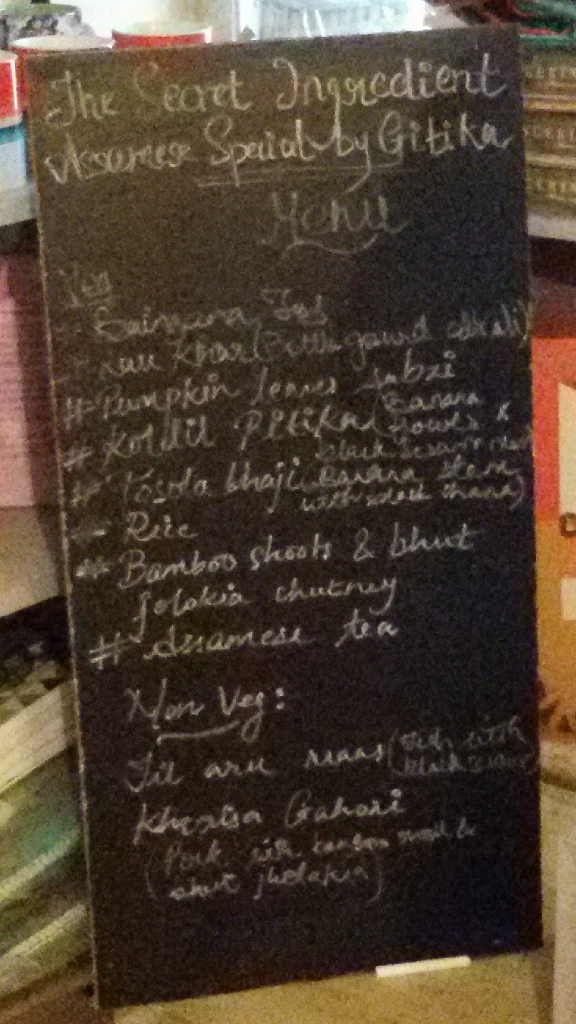 The Secret Ingredient
Assamese Special by Gitika
Menu
Veg
Lau Khar (Bottle gourd alkali)
# Pumpkin leaves Sabzi
# Koldil Pitika (Banana
flowers &
black sesame
# Posola bhaji (Banana stem
with
Rice
Bamboo shoots & bhut
Jolokia chutney
# Assamese tea
Non Veg:
Til aru maas (Fish with
black sesame)
Khorisa Gahori
(Pork with bamboo shoot &
bhut jholakia)